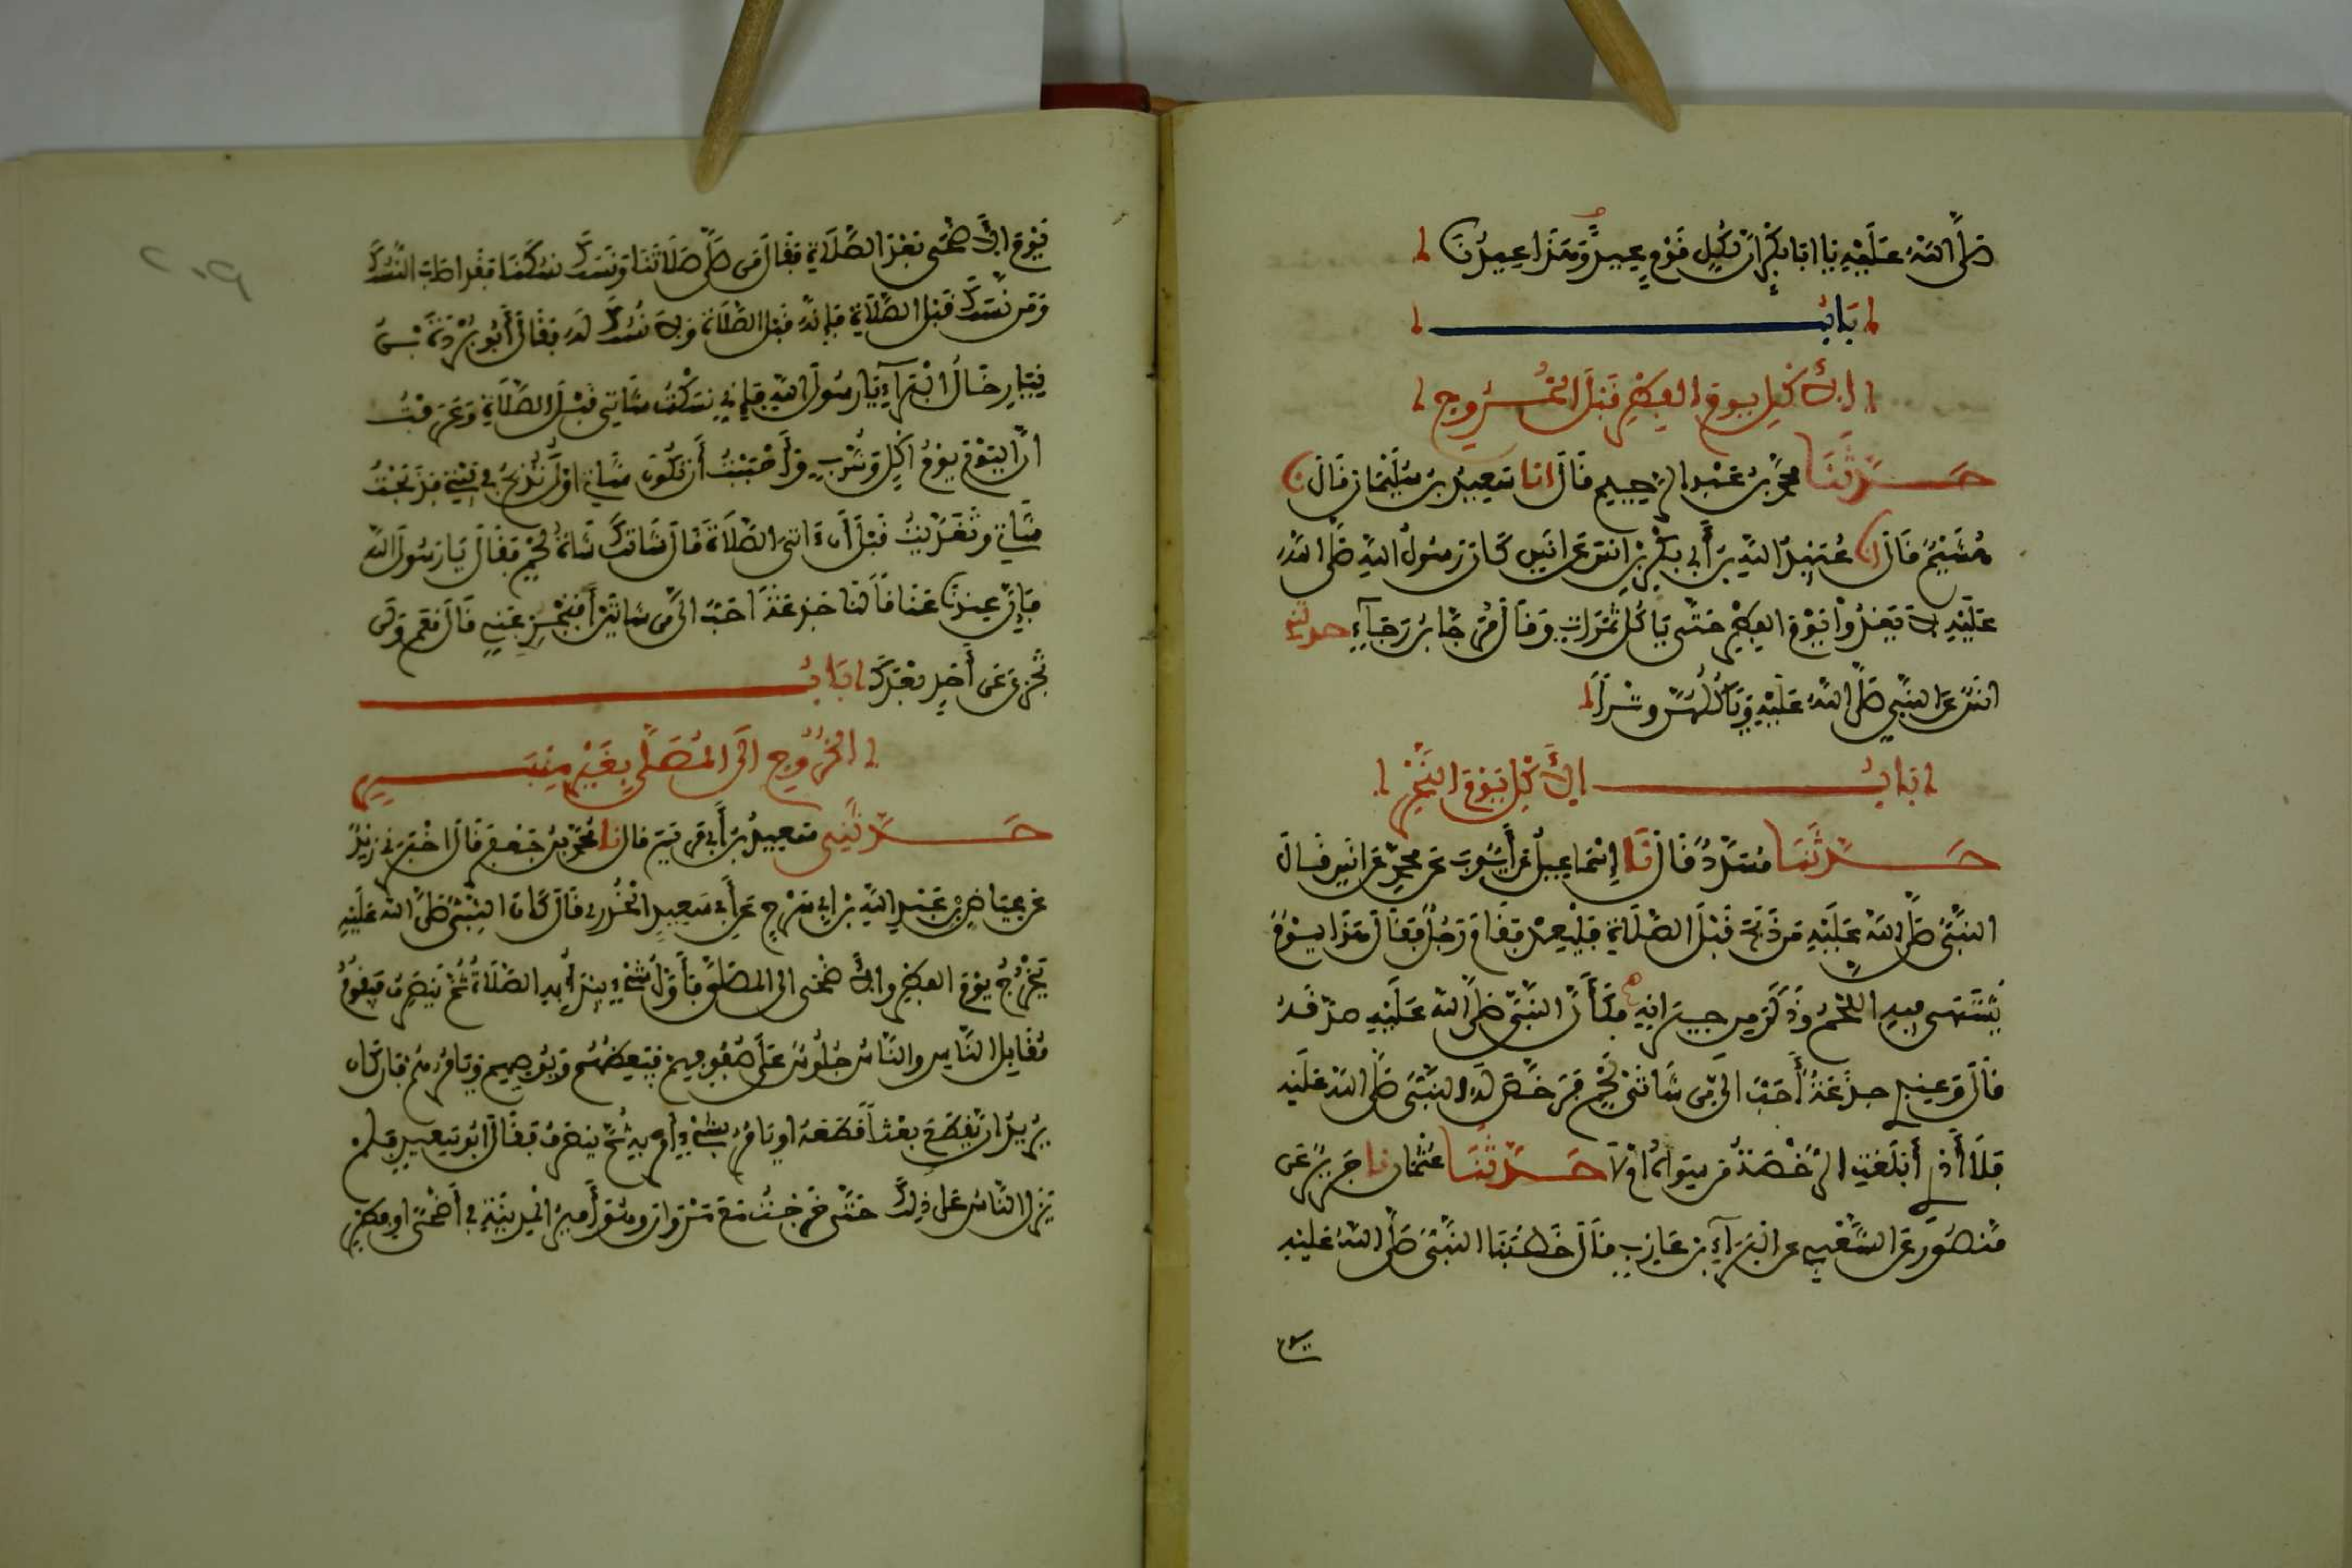 صلى الله عليه يا ابا بكر ان لكل قوم عيد وهذا عيدنا
باب
الاكل يوم الفطر قبل الخروج
حدثنا محمد بن عبد الرحيم قال انا سعيد بن سليمان قال نا
هشيم قال نا عبيد الله بن أبي بكر بن انس عن انس كان رسول الله صلى الله
عليه لا يغدوا يوم الفطر حتى يأكل تمرات وقال مرجا بن رجاء حدثني
انس عن النبي صلى الله عليه ويأكلهن وترا
باب الاكل يوم النحر
حدثنا مسدد قال نا إسماعيل عن أيوب عن محمد عن انس قال
النبي صلى الله عليه من ذبح قبل الصلاة فليعد فقام رجل فقال هذا يوم
يشتهى فيه اللحم وذكر من جيرانه فكأن النبي صلى الله عليه صدقه
قال وعندي جذعة أحب الي من شاتي لحم فرخص له النبي صلى الله عليه
فلا أدري أبلغت الرخصة من سواه ام لا حدثنا عثمان نا جرير عن
منصور عن الشعبي عن البراء بن عازب قال خطبنا النبي صلى الله عليه
يوم
يوم الاضحى بعد الصلاة فقال من صلى صلاتنا ونسك نسكنا فقد اصاب النسك
ومن نسك قبل الصلاة فإنه قبل الصلاة ولا نسك له فقال أبو بردة بن
نيار خال البراء يا رسول الله فإني نسكت شاتي قبل الصلاة وعرفت
ان اليوم يوم اكل وشرب وأحببت أن تكون شاتي اول تذبح في بيتي فذبحت
شاتي وتغديت قبل أن اتي الصلاة قال شاتك شاة لحم فقال يا رسول الله
فإن عندنا عناقا لنا جذعة احب الي من شاتين أفتجزي عني قال نعم ولن
تجزي عن أحد بعدك باب
الخروج الى المصلى بغير منبر
حدثني سعيد بن أبي مريم قال نا محمد بن جعفر قال اخبرني زيد
عن عياض بن عبد الله بن ابي سرح عن أبي سعيد الخدري قال كان النبي صلى الله عليه
يخرج يوم الفطر والاضحى الى المصلى فأول شيء يبدأ به الصلاة ثم ينصرف فيقوم
مقابل الناس والناس جلوس على صفوفهم فيعظهم ويوصيهم ويأمرهم فان كان
يريد ان يقطع بعثا قطعه او يأمر بشيء امر به ثم ينصرف فقال ابو سعيد فلم
يزل الناس على ذلك حتى خرجت مع مروان وهو أمير المدينة في أضحى او فطر